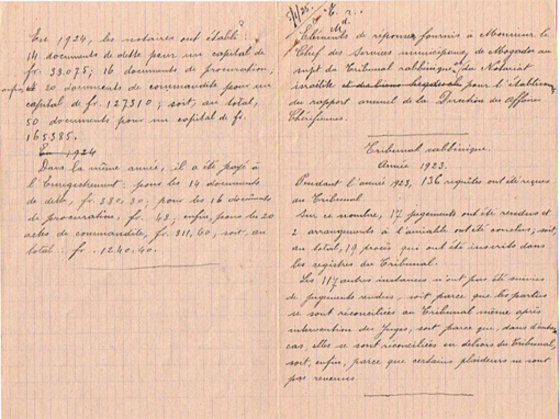 En 1924, les notaires ont établi :
14 documents de dette pour un capital de
fr. 38.075; 16 documents de procuration;
enfin, et 20 documents de commandite pour un
capital de fr. 127310; soit, au total,
50 documents pour un capital de fr.
165385.
En 1924
Dans la même année, il a été payé à
l'Enregistrement : pour les 14 documents
de dette, fr. 380,80; pour les 16 documents
de procuration, fr. 48; enfin, pour les 20
actes de commandite, fr. 811,60, soit, au
total : fr. 1240.40.
Eléments de réponse fournis à Monsieur le
Chef des Services municipaux de Mogador au
sujet du Tribunal rabbinique, du Notariat
israélite et des biens pour l'établissement
du rapport annuel de la Direction des Affaires
Chérifiennes.
Tribunal rabbinique.
Année 1923.
Pendant l'année 1923, 136 requêtes ont été reçues
au Tribunal.
Sur ce nombre, 17 jugements ont été rendus et
2 arrangements à l'amiable ont été conclus; soit,
au total, 19 procès qui ont été inscrits dans
les registres du Tribunal.
Les 117 autres instances n'ont pas été suivies
de jugements rendus, soit parce que les parties
se sont réconciliées au Tribunal même après
intervention des Juges, soit parce que, dans d'autres
cas, elles se sont réconciliées en dehors du Tribunal,
soit, enfin, parce que certains plaideurs ne sont
pas revenus.